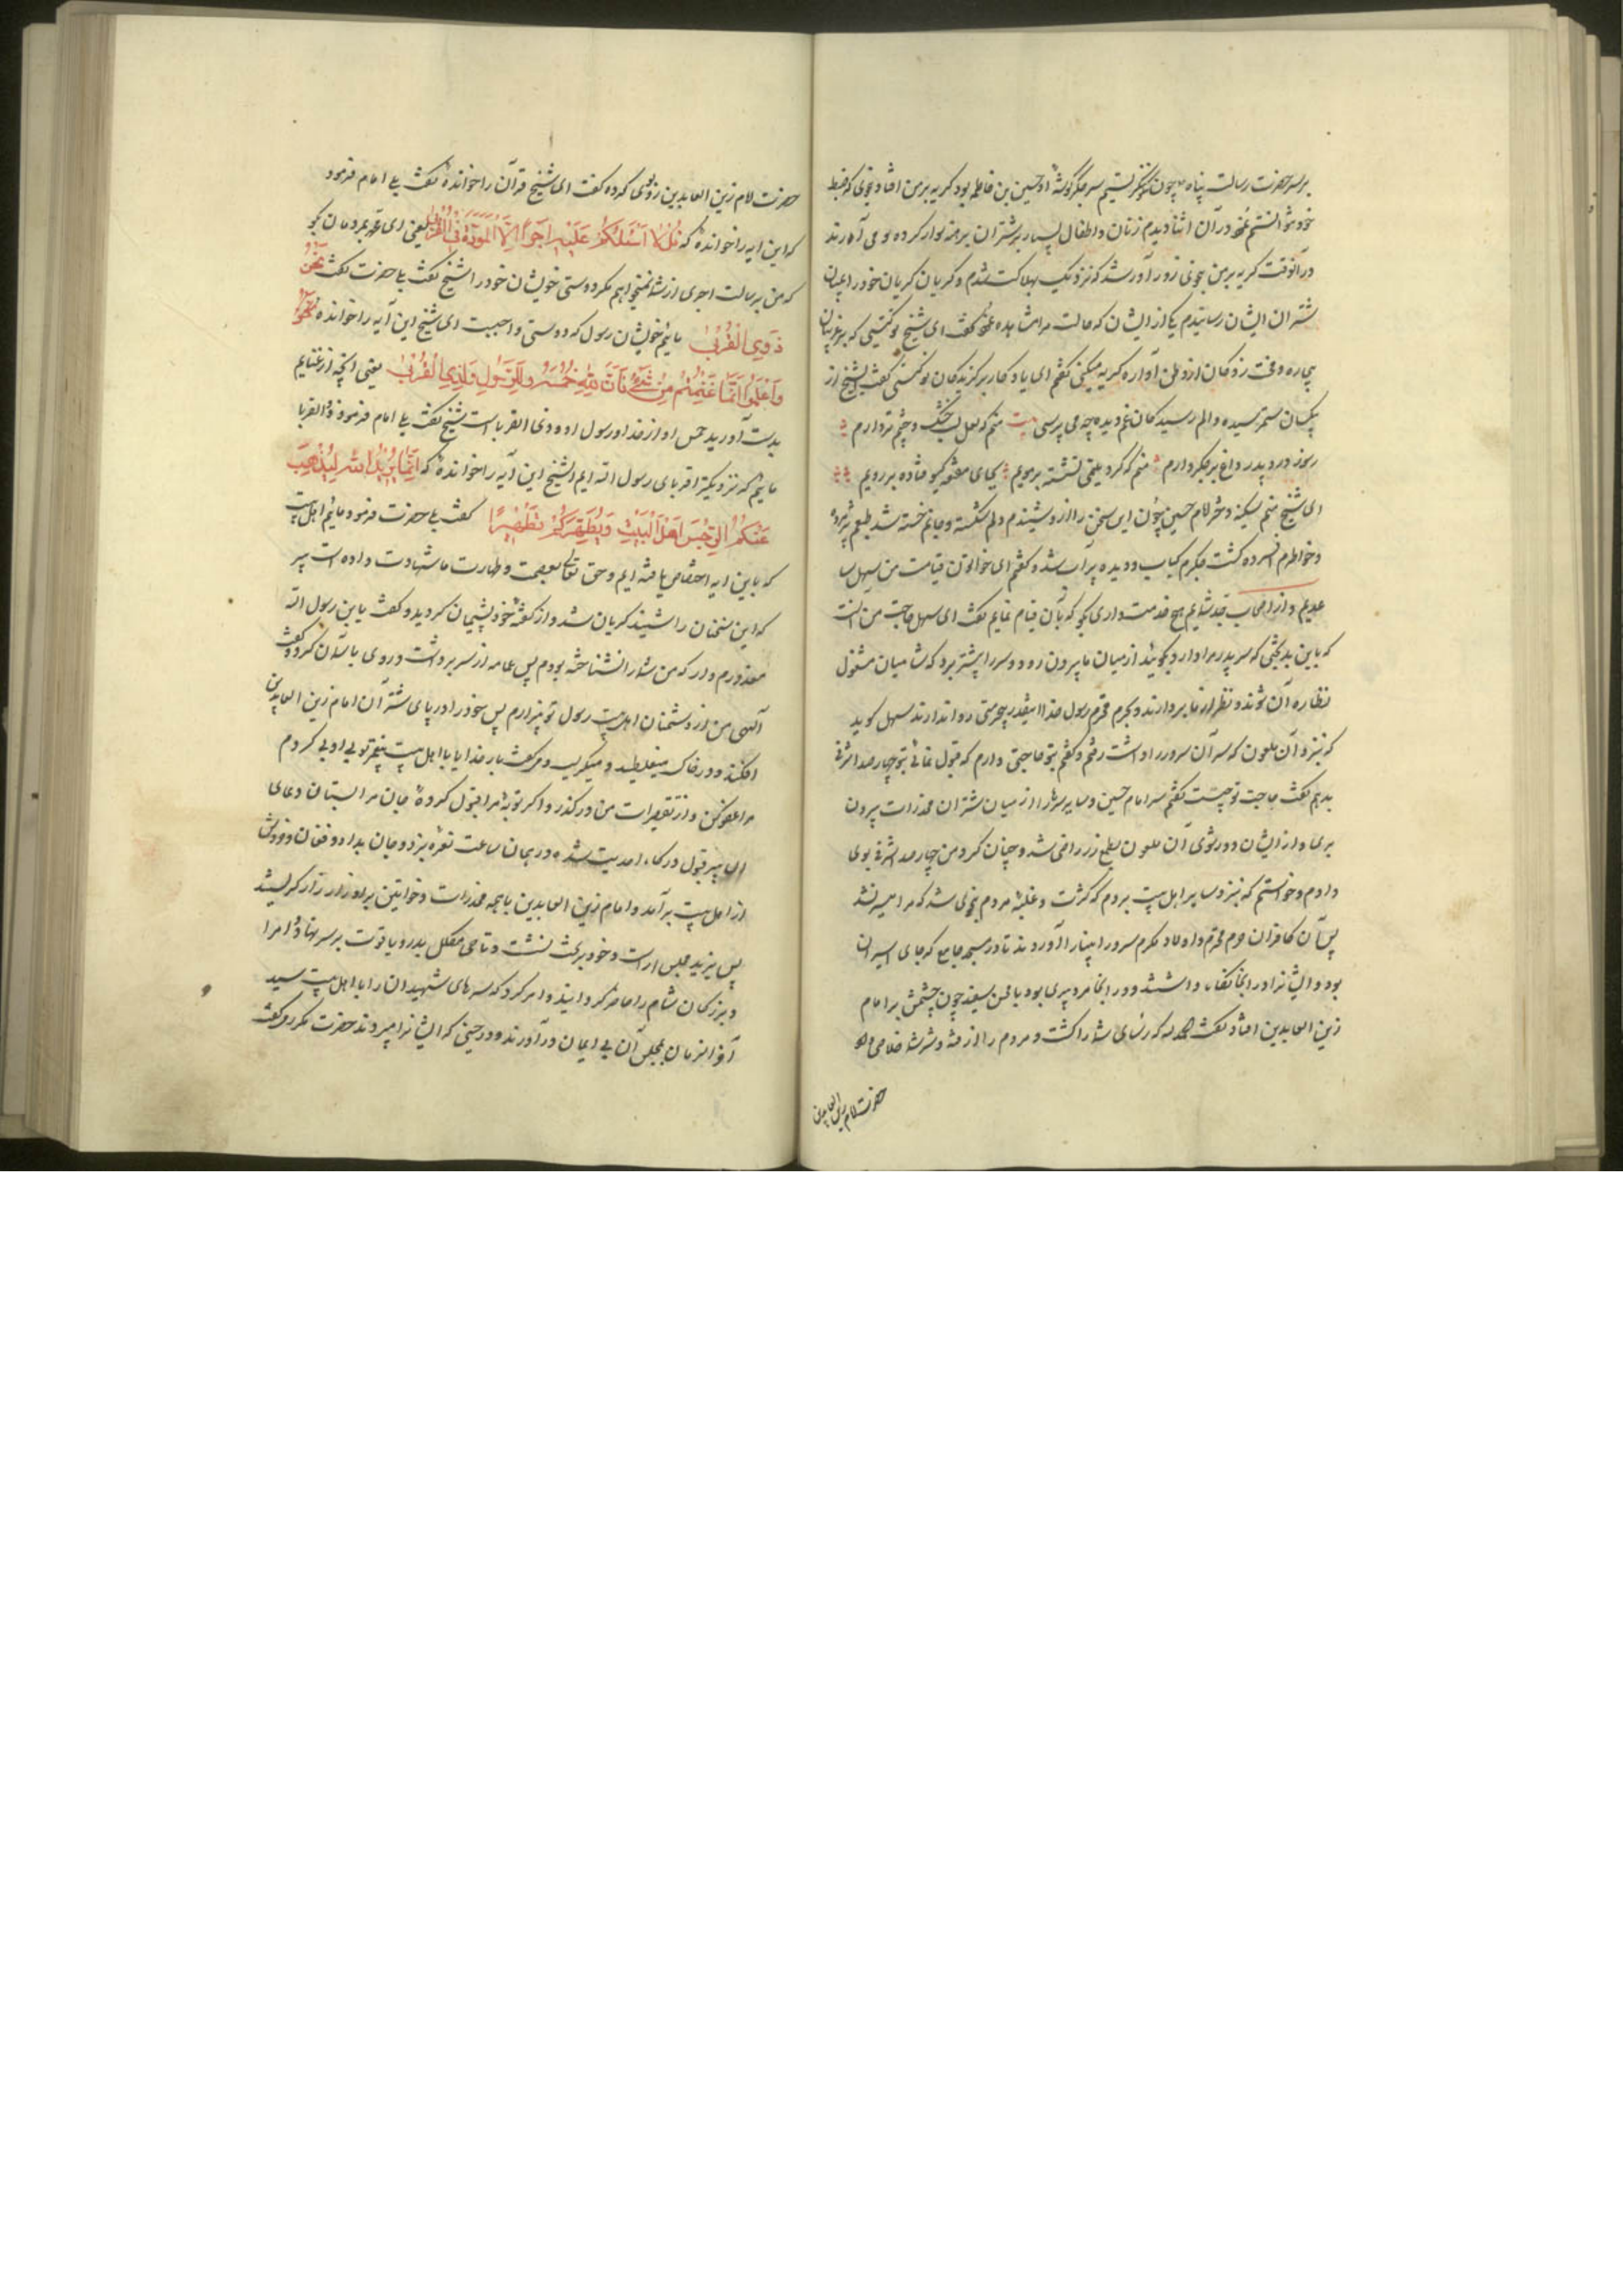 بر سر حضرت رسالت پناه چون نیکو نگریستم سر جگر گوشهٔ او حسین بن فاطمه بود گریه بر من افتاد بنوعی که ضبط
خود نتوانستم نمود در آن اثنا دیدم زنان و اطفال بسیار بر شتران برهنه سوار کرده می آوردند
در آنوقت گریه بر من بنوعی زور آور شد که نزدیک بهلاکت شدم و گریان گریان خود را بمیان
شتران ایشان رسانیدم یکی از ایشان که حالت مرا مشاهده نمود گفت ای شیخ تو کیستی که بر غریبان
بیچاره وقت زدگان از وطن آواره گریه میکنی گفتم ای یادگار برگزیدگان تو کیستی گفت ای شیخ از
یکسان ستم رسیده و الم رسیدگان غم دیده چه می پرسی بیت منم که لعل لب خشک و چشم تر دارم
رسوز درد پدر داغ بر جگر دارم منم که گرد یتیمی نشسته بر مویم بجای مقنعه گیسو فتاده بر رویم
ای شیخ منم سکینه دختر امام حسین چون این سخن را از او شنیدم دلم شکسته و جانم خسته شد طبعم پژمرده
و خاطرم افسرده گشت جگرم کباب و دیده پر آب شد و گفتم ای خواتون قیامت من سهل سا
عدیم و از اصحاب جد شمایم هیچ خدمت داری بگو که بآن قیام نمایم گفت ای سهل حاجت من آنست
که باین بدبختی که سر پدر مرا دارد بگوئید از میان ما بیرون رود و سر را پیشتر برد که شامیان مشغول
نظاره آن شوند و نظر از ما بردارند و بحرم محترم رسول خدا اینقدر بیحرمتی روا ندارند سهل گوید
که نزد آن ملعون که سر آن سرور را داشت رفتم و گفتم بتو حاجتی دارم که قبول نمائی بتو چهار صد اشرفی
بدهم گفت حاجت تو چیست گفتم سر امام حسین و سایر سرها را از میان شتران مخدرات بیرون
بری و از ایشان دور شوی آن ملعون بطمع زر راضی شد و چنان کرد من چهار صد اشرفی بوی
دادم و خواستم که نزد سایر اهل بیت بروم که کثرت و غلبهٔ مردم بنوعی شد که مرا میسر نشد
پس آن کافران حرم محترم و اولاد مکرم سرور انبیا را آوردند تا در مسجد جامع که جای اسیران
بود و ایشانرا در انجا نگاه داشتند و در انجا مرد پیری بود با محاسن سفید چون چشمش بر امام
زین العابدین افتاد گفت الحمد لله که رؤسای شما را کشت و مردم را از فتنه و شر شما خلاصی داد
حضرت امام زین العابدین
حضرت امام زین العابدین رو بوی کرده گفت ای شیخ قرآن را خواندهٔ گفت بلی امام فرمود
که این ایه را خواندهٔ که قُل لا اَسْئَلُکُمْ عَلَیْهِ اَجْرًا اِلَّا الْمَوَدَّةَ فِی الْقُرْبٰی یعنی ای محمد بمردمان بگو
که من برسالت اجری از شما نمیخواهم مگر دوستی خویشان خود را شیخ گفت بلی حضرت گفت نَحْنُ
ذَوِی الْقُرْبٰی مائیم خویشان رسول که دوستی واجبست ای شیخ این آیه را خواندهٔ
وَاعْلَمُوا اَنَّمَا غَنِمْتُمْ مِنْ شَیْءٍ فَاَنَّ لِلّٰهِ خُمُسَهُ وَلِلرَّسُولِ وَلِذِی الْقُرْبٰی یعنی انچه از غنایم
بدست آورید خمس او از خدا و رسول او و ذی القربا است شیخ گفت بلی امام فرمود ذو القربا
مائیم که نزدیکتر اقربای رسول الله ایم ای شیخ این آیه را خواندهٔ که اِنَّمَا یُرِیدُ اللهُ لِیُذْهِبَ
عَنْکُمُ الرِّجْسَ اَهْلَ الْبَیْتِ وَیُطَهِّرَکُمْ تَطْهِیرًا گفت بلی حضرت فرمود مائیم اهل بیت
که باین ایه اختصاص یافته ایم و حق تعالی بعصمت و طهارت ما شهادت داده است پیر
که این سخنان را شنید گریان شد و از گفتهٔ خود پشیمان گردید و گفت یا بن رسول الله
معذورم دار که من شما را نشناخته بودم پس عمامه از سر برداشت و روی باسمان کرد و گفت
الهی من از دشمنان اهل بیت رسول تو بیزارم پس خود را در پای شتر آن امام زین العابدین
افکند و در خاک میغلطید و میگریست و میگفت بار خدایا با اهل بیت پیغمبر تو بی ادبی کردم
مرا عفو کن و از تقصیرات من در گذر و اگر توبهٔ مرا قبول کردهٔ جان مرا بستان دعای
آن پیر قبول درگاه احدیت شده در همان ساعت نعره بزد و جان بداد و فغان و خروش
از اهل بیت برآمد و امام زین العابدین با همه مخدرات و خواتین بر او زار زار گریستند
پس یزید مجلس آراست و خود بر تخت نشست و تاجی مکلل بدر و یاقوت بر سر نهاد و امرا
و بزرگان شام را حاضر گردانید و امر کرد که سرهای شهیدان را با اهل بیت سید
آخر الزمان بمجلس آن بی ایمان در آورند و در حینی که ایشانرا میبردند حضرت مکرر میگفت